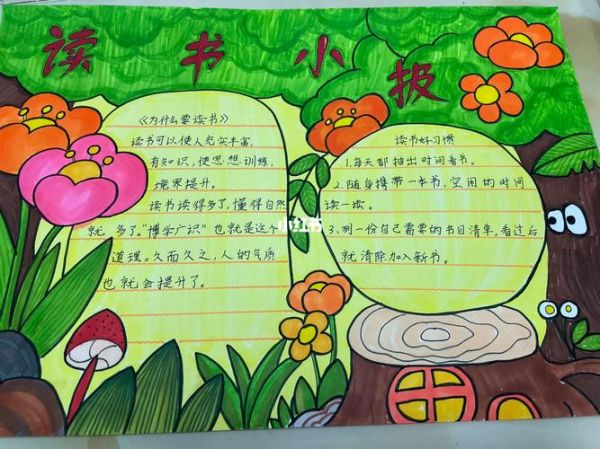 读书小报
《为什么要读书》
读书可以使人充实丰富,
有知识,使思想训练,
境界提升。
读书读得多了,懂得自然
就多了,"博学广识"也就是这个
道理。久而久之,人的气质
也就会提升了。
小红书
读书好习惯
1.每天都抽出时间看书。
2.随身携带一本书,空闲的时间
读一读。
3.列一份自己需要的书目清单,看过后
就清除加入新书。